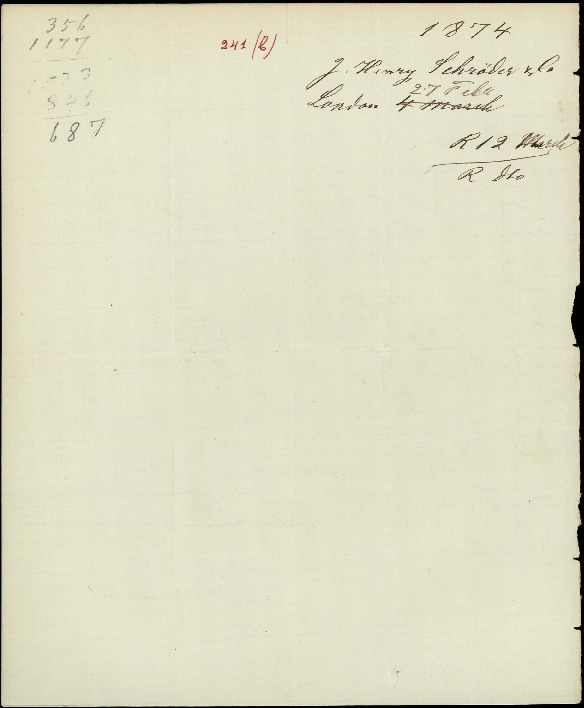 356
1177
3
846
687
241 (b)
1874
J. Henry Schröder & Co
27 Feb
London 4 March
R 12 March
R Do